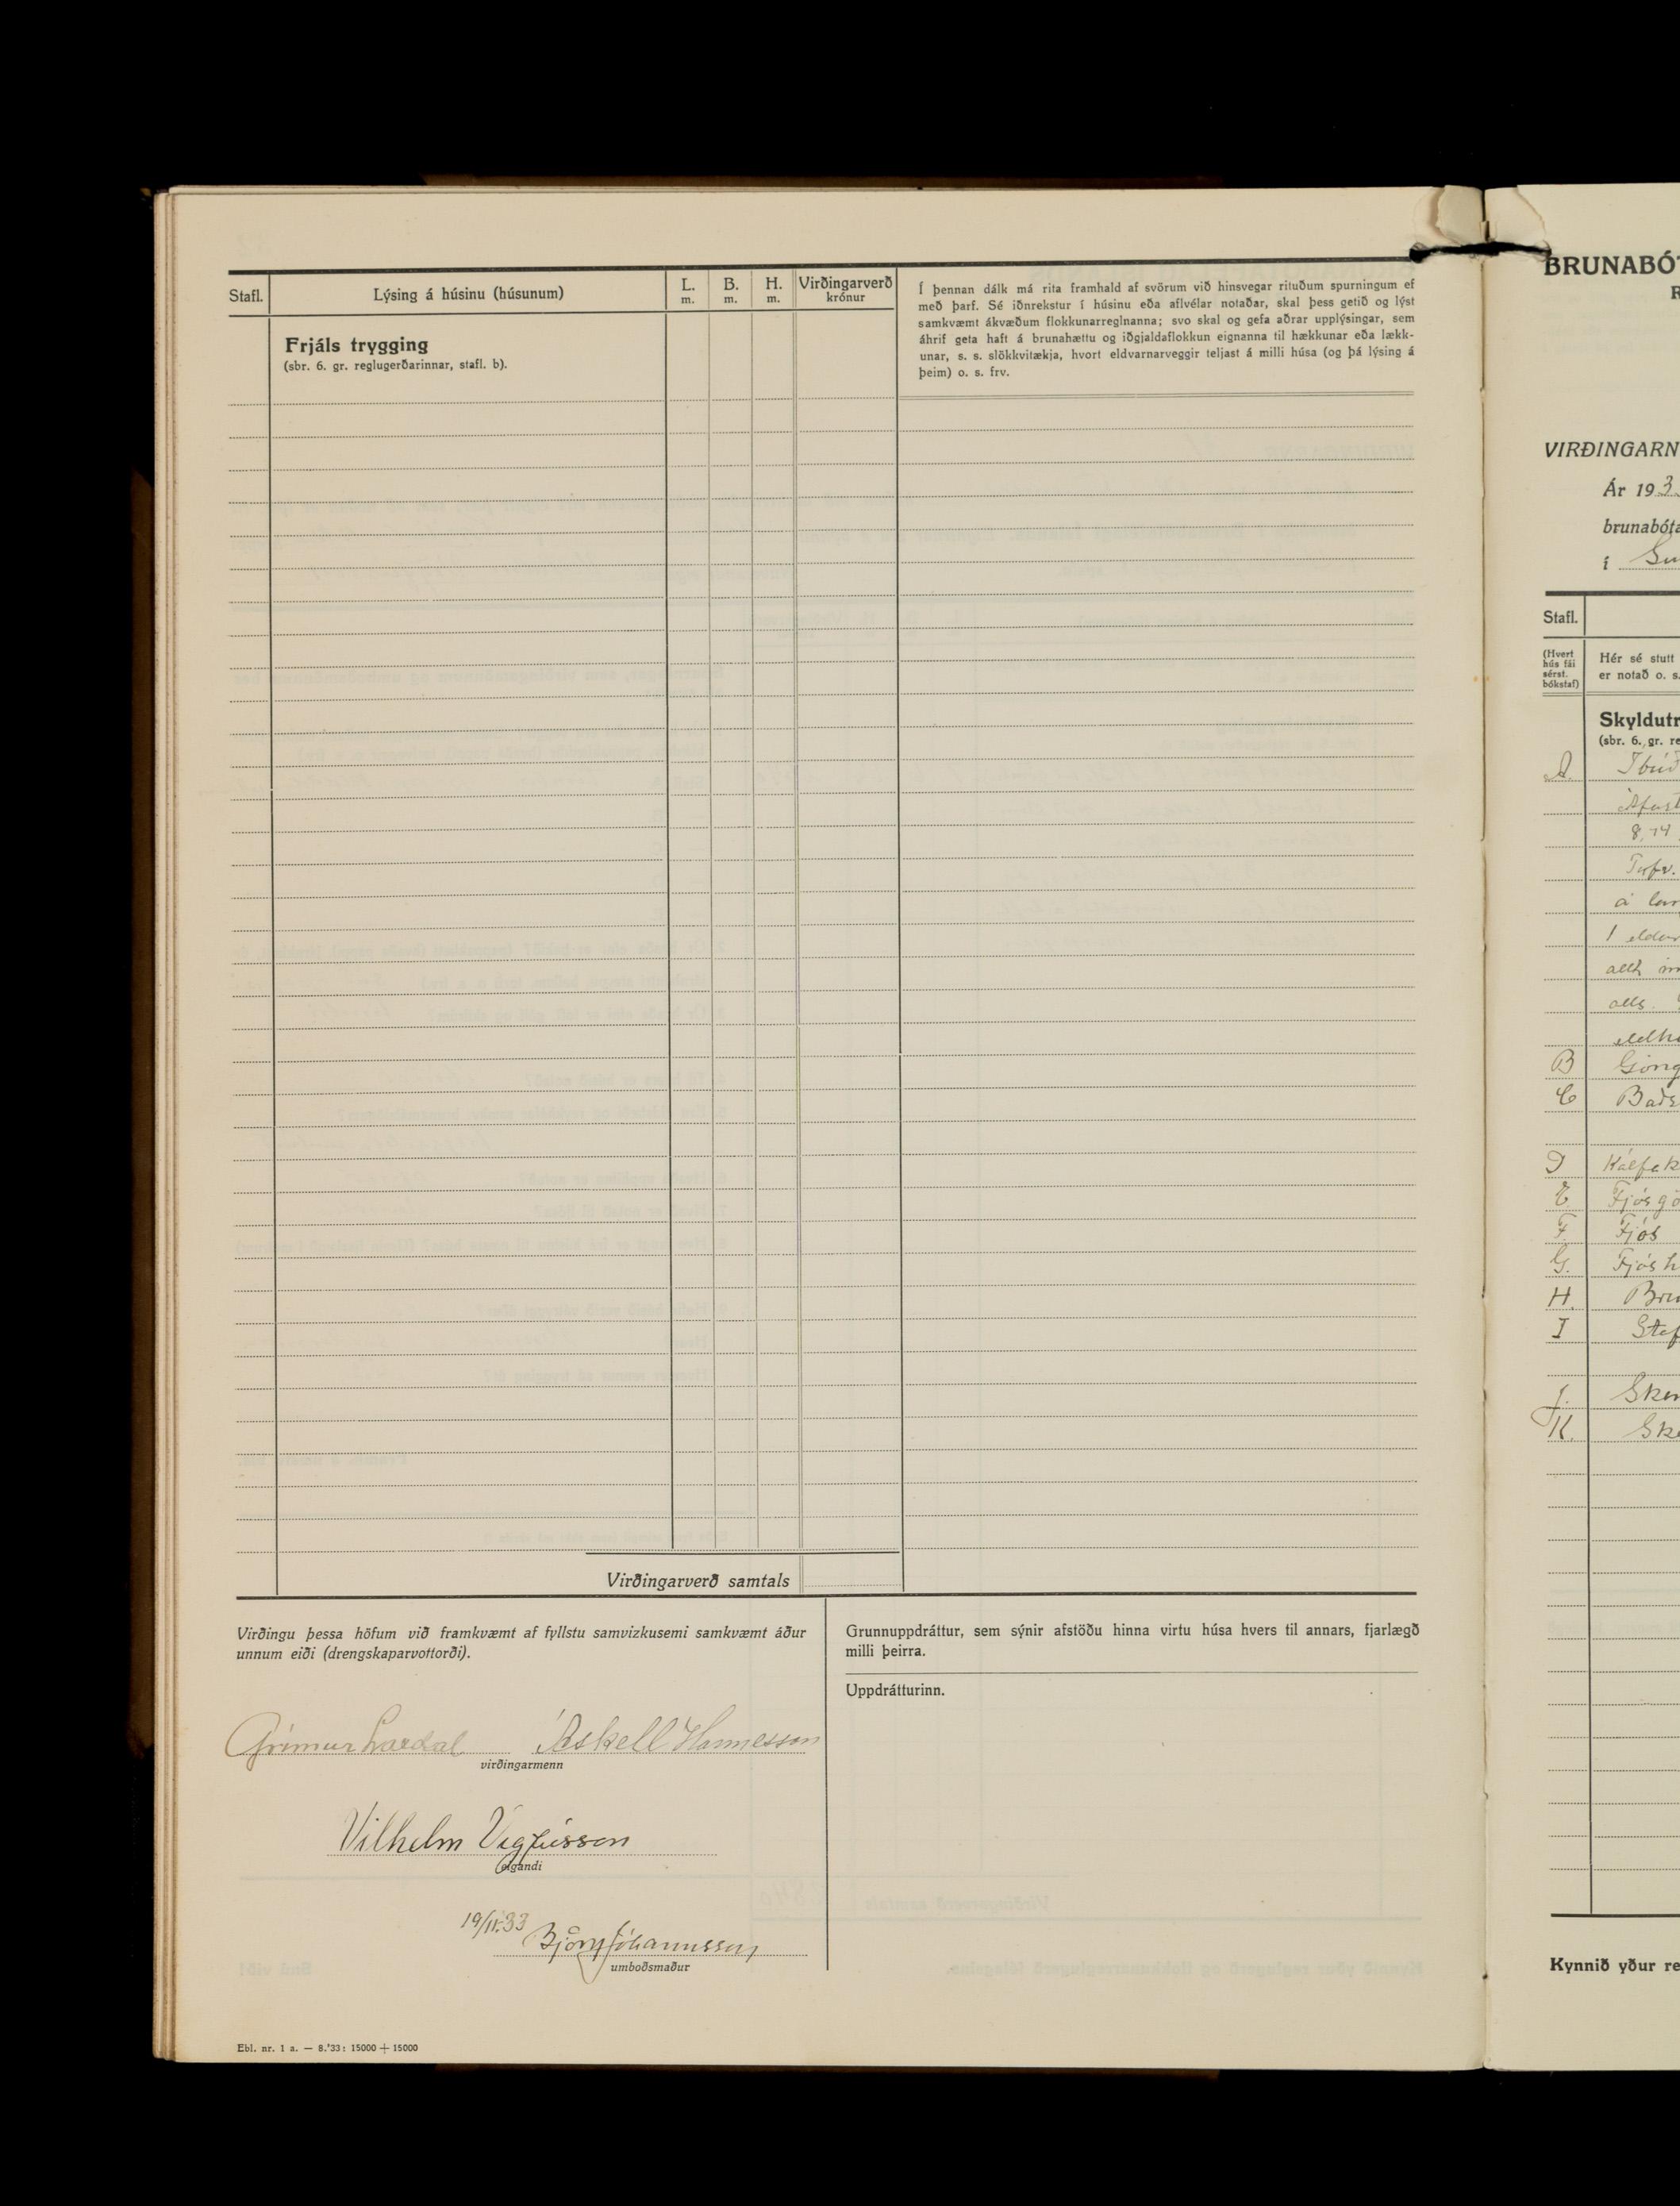 Stafl.
Lýsing á húsinu (húsunum)
L.
m.
B.
m.
H.
m.
Virðingarverð
krónur
Í þennan dálk má rita framhald af svörum við hinsvegar rituðum spurningum ef
með þarf. Sé iðnrekstur í húsinu eða aflvélar notaðar, skal þess getið og lýst
samkvæmt ákvæðum flokkunarreglnanna; svo skal og gefa aðrar upplýsingar, sem
áhrif geta haft á brunahættu og iðgjaldaflokkun eignanna til hækkunar eða lækk-
unar, s. s. slökkvitækja, hvort eldvarnarveggir teljast á milli húsa (og þá lýsing á
þeim) o. s. frv.
Frjáls trygging
(sbr. 6. gr. reglugerðarinnar, stafl. b).
Virðingarverð samtals
Virðingu þessa höfum við framkvæmt af fyllstu samvizkusemi samkvæmt áður
unnum eiði (drengskaparvottorði).
Grímur Laxdal Áskell Hannesson
virðingarmenn
Vilhelm Vigfússon
eigandi
19/11.33 Björn Jóhannsson
umboðsmaður
Grunnuppdráttur, sem sýnir afstöðu hinna virtu húsa hvers til annars, fjarlægð
milli þeirra.
Uppdrátturinn.
Ebl. nr. 1 a. — 8.'33: 15000 + 15000
BRUNABÓT
R
VIRÐINGARN
Ár 193
brunabóta
í
Stafl.
(Hvert
hús fái
sérst.
bókstaf)
Hér sé stutt
er notað o. s.
Skyldutr
(sbr. 6. gr. re
A. Íbúð
Áfast
8,74
á
1 eldav
allt inn
alls.
eldhú
B Göng
C Baðs
D Kálfak
E. Fjósgö
F. Fjós
G. Fjósh
H. Bru
I Stof
J. Skem
K. Ske
Kynnið yður re